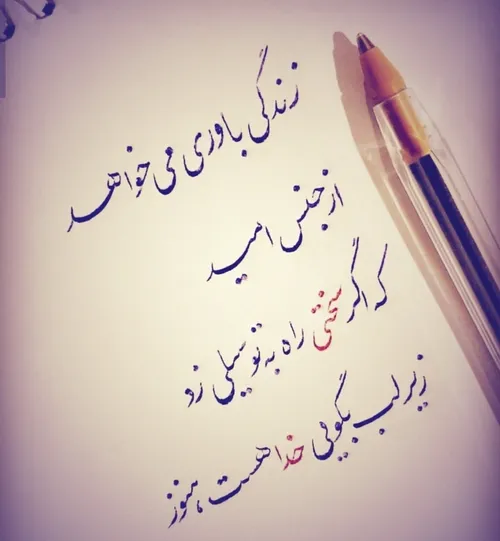 زندگی باوری می‌خواهد
از جنس امید
که اگر سختی راه به تو سیلی زد
زیر لب بگویی خدا هست هنوز